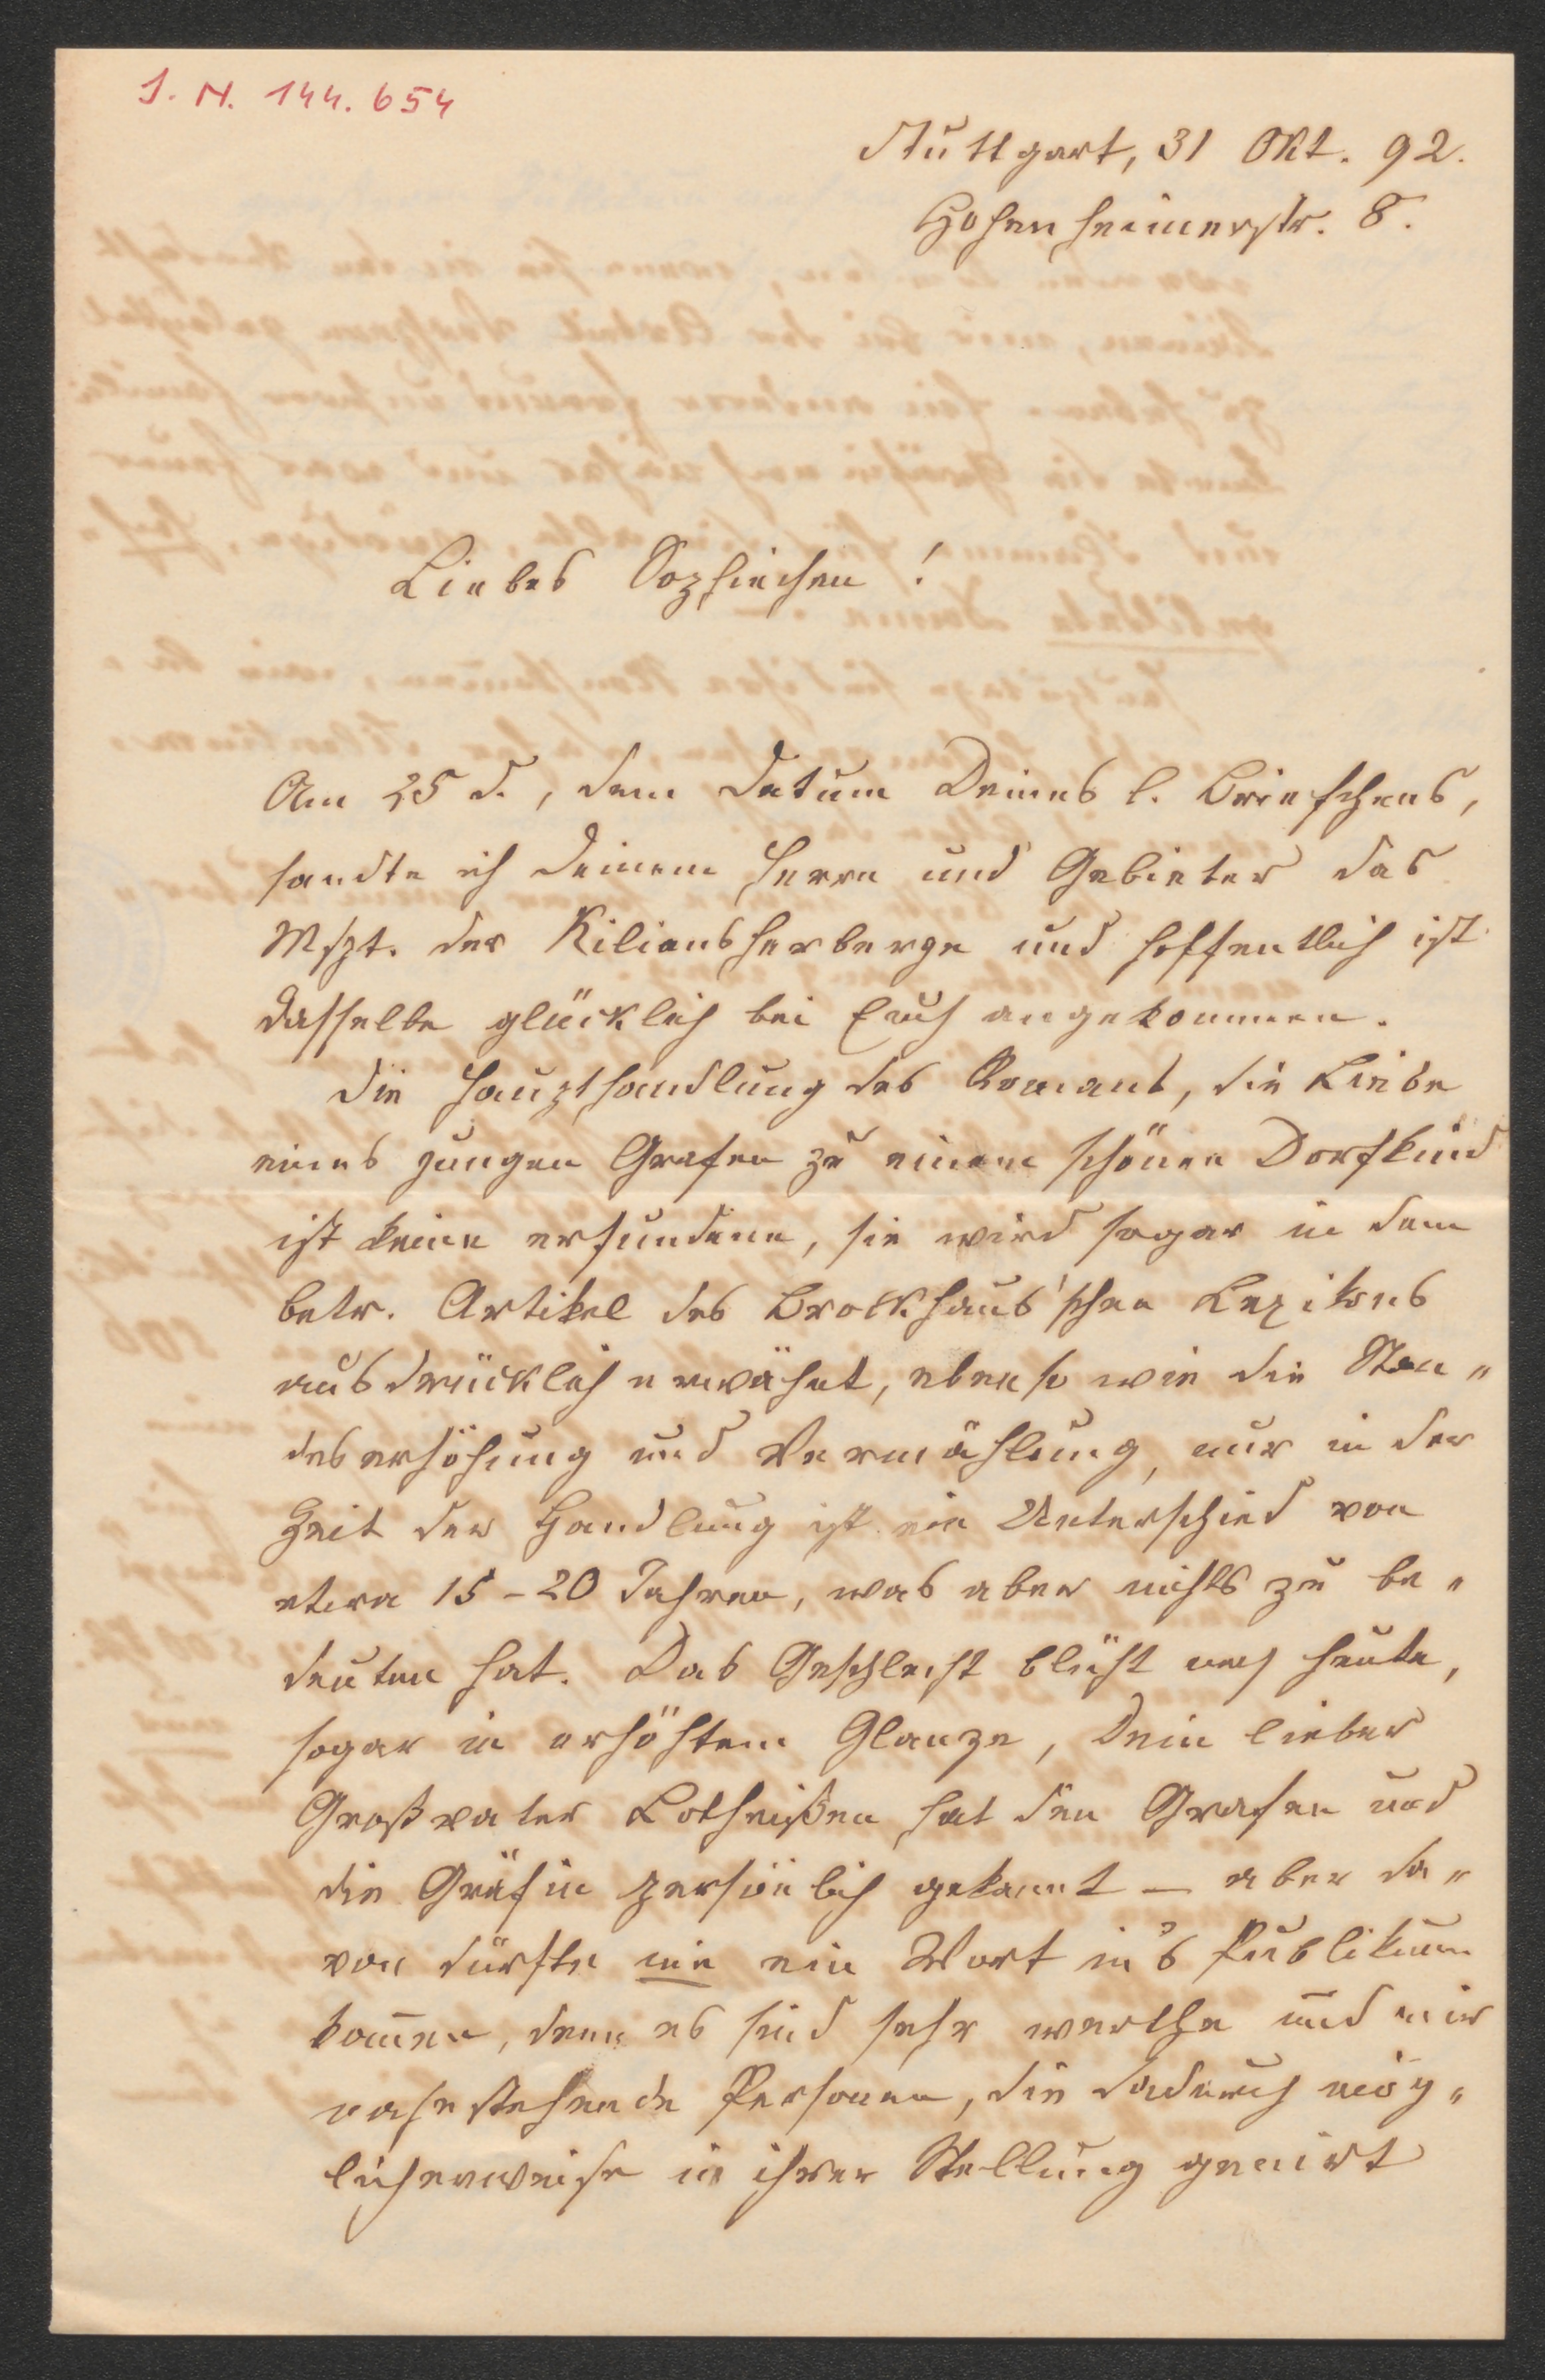 J. N. 144.654
Stuttgart, 31 Okt. 92.
Hohenheimerstr. 8.
Liebes Sophiechen!
Am 25 d., dem Datum Deines l. Briefchens,
sandte ich Deinem Herrn und Gebieter das
Mspt. der Kiliansherberge und hoffentlich ist
dasselbe glücklich bei Euch angekommen.
Die Haupthandlung des Romans, die Liebe
eines jungen Grafen zu einem schönen Dorfkind
ist keine erfundene, sie wird sogar in dem
betr. Artikel des Brockhaus'schen Lexikons
ausdrücklich erwähnt, ebenso wie die Stan„
deserhöhung und Vermählung, nur in der
Zeit der Handlung ist ein Unterschied von
etwa 15-20 Jahren, was aber nichts zu be„
deuten hat. Das Geschlecht blüht noch heute,
sogar in erhöhtem Glanze, Dein lieber
Großvater Lotheißen hat den Grafen und
die Gräfin persönlich gekannt — aber da„
von dürfte nie ein Wort in's Publikum
kom̅en, denn es sind sehr werthe und mir
nahestehende Personen, die dadurch mög„
licherweise in ihrer Stellung genirt